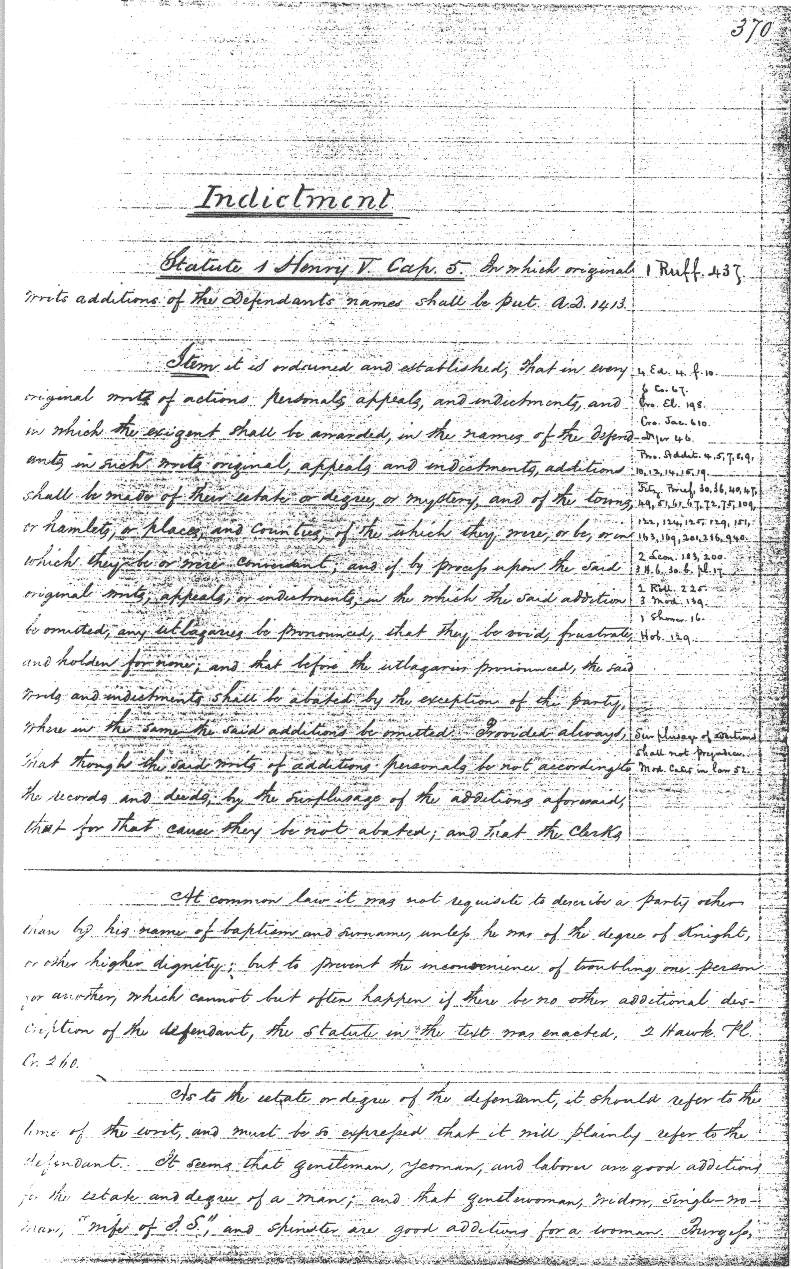 370
Indictment
Statute 1 Henry V. Cap. 5. In which original
1 Ruff. 437.
writs additions of the Defendants names shall be put. A.D. 1413.
Item it is ordained and established, That in every
original writs of actions personals, appeals, and indictments, and
in which the exigent shall be awarded, in the names of the defend-
ants in such writs original, appeals and indictments, additions
shall be made of their estate or degree, or mystery, and of the towns,
or hamlets, or places, and counties, of the which they were, or be, or in
which they be or were conversant; and if by process upon the said
original writs, appeals, or indictments, in the which the said addition
be omitted, any utlagaries be pronounced, that they be void, frustrate,
and holden for none; and that before the utlagaries pronounced, the said
writs and indictments shall be abated by the exception of the party,
where in the same the said additions be omitted. Provided always,
That though the said writs of additions personals be not according to
the records and deeds, by the surplusage of the additions aforesaid,
that for that cause they be not abated; and that the Clerks
4 Ed. 4. f. 10.
6 Co. 67.
Cro. El. 198.
Cro. Jac. 610.
Dyer 46.
Bro. Addit. 4, 5, 7, 8, 9,
10, 12, 14, 15, 19.
Fitz. Brief, 30, 36, 40, 47,
49, 51, 61, 67, 72, 75, 109,
122, 124, 125, 129, 151,
163, 169, 201, 216, 940.
2 Leon. 183, 200.
3 H. 6. 30. b. pl. 17.
2 Roll. 225.
3 Mod. 139.
1 Shower 16.
Hob. 129.
Surplusage of additions
shall not prejudice.
Mod. Cases in law 52.
At common law it was not requisite to describe a party other
than by his name of baptism and surname, unless he was of the degree of Knight,
or other higher dignity; but to prevent the inconvenience of troubling one person
for another, which cannot but often happen if there be no other additional des-
cription of the defendant, the statute in the text was enacted. 2 Hawk. Pl.
Cr. 260.
As to the estate or degree of the defendant, it should refer to the
time of the writ, and must be so expressed that it will plainly refer to the
defendant. It seems that gentleman, yeoman, and laborer are good additions
for the estate and degree of a man; and that gentlewoman, widow, single-wo-
man, "wife of J. S.", and spinster are good additions for a woman. Burgess,